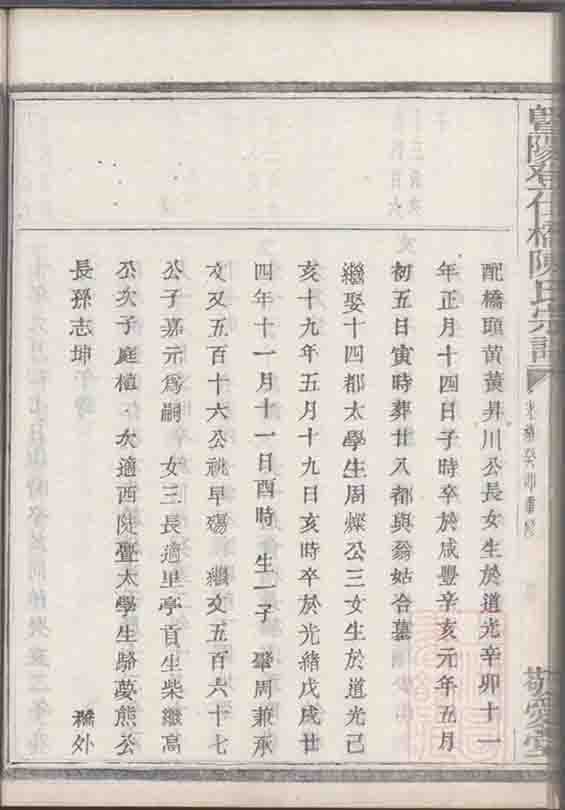 暨陽登仕橋陳氏宗譜
光緒癸卯重修
敬愛堂
配橋頭黃黃昇川公長女生於道光辛卯十一
年正月十四日子時卒於咸豐辛亥元年五月
初五日寅時葬廿八都與翁姑合墓
繼娶十四都太學生周燦公三女生於道光己
亥十九年五月十九日亥時卒於光緒戊戌廿
四年十一月十一日酉時 生一子 肈周兼承
文又五百十六公祧早殤 繼文五百六十七
公子嘉元爲嗣 女三長適里亭貢生柴繼高
公次子庭植 次適西陡疊太學生駱夢熊公
長孫志坤
橋外